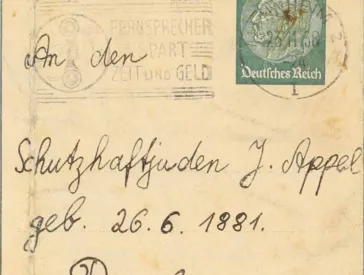 FERNSPRECHER
SPART
ZEIT UND GELD
Deutsches Reich
An den
Schutzhaftjuden J. Appel
geb. 26.6.1881.